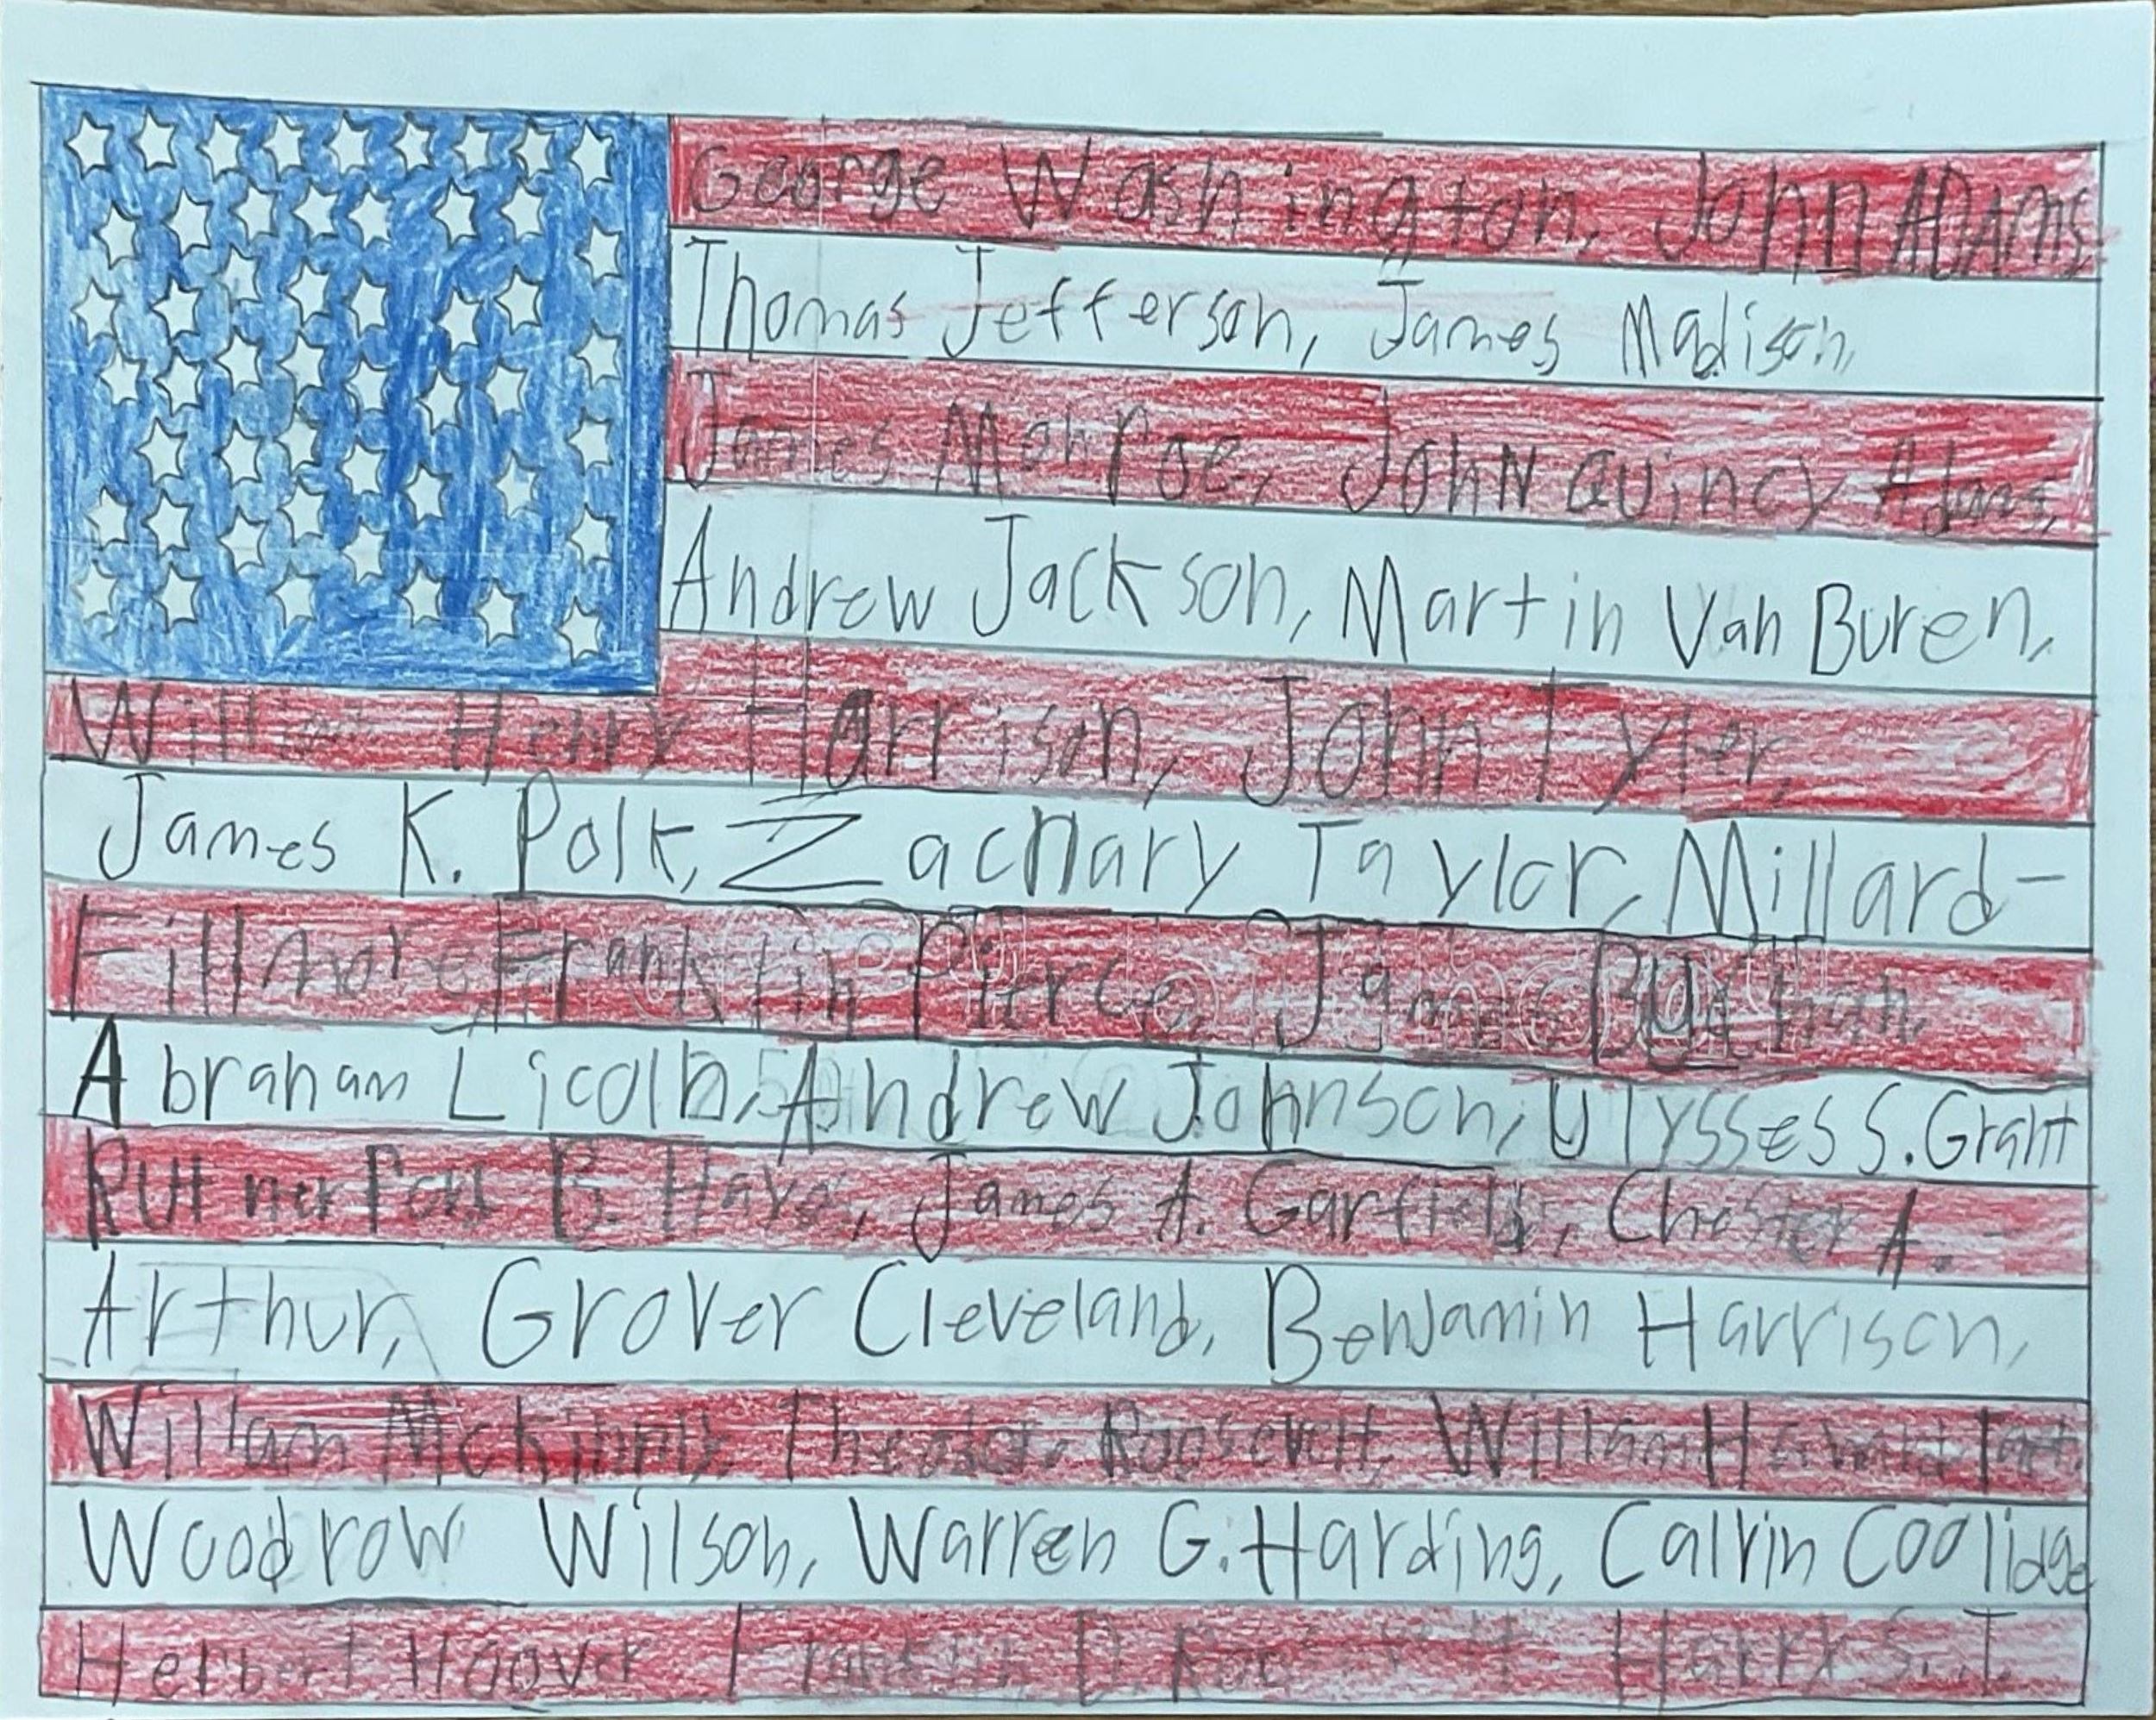 George Washington, John ADAMS,
Thomas Jefferson, James Madison,
James Monroe, JOHN QUINCY Adams,
Andrew Jackson, Martin Van Buren,
William Henry Harrison, John Tyler,
James K. Polk, Zachary Taylor, Millard-
Fillmore, Franklin Pierce, James
Abraham Licoln, Andrew Johnson, Ulysses S. Grant
B. Hayes, James A. Garfield, Chester A.
Arthur, Grover Cleveland, Benjamin Harrison,
William Theodore Roosevelt, William Howard Taft,
Woodrow Wilson, Warren G. Harding, Calvin Coolidge
Herbert Hoover Franklin D. Harry S. T.